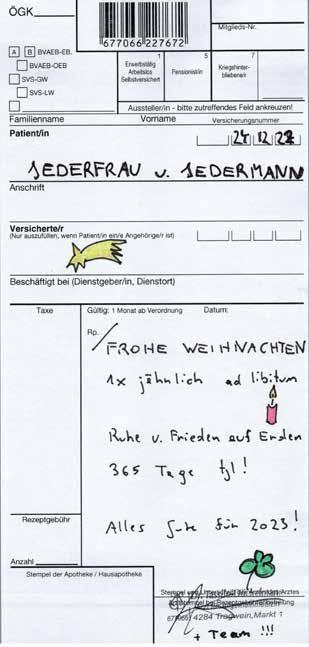 ÖGK
677066227672
Mitglieds-Nr.
A B BVAEB-EB.
BVAEB-OEB
SVS-GW
SVS-LW
1
Erwerbstätig
Arbeitslos
Selbstversichert
5
Pensionist/in
7
Kriegshinter-
bliebene/r
Aussteller/in - bitte zutreffendes Feld ankreuzen!
Familienname Vorname Versicherungsnummer
Patient/in 24 12 22
JEDERFRAU u. JEDERMANN
Anschrift
Versicherte/r
(Nur auszufüllen, wenn Patient/in ein/e Angehörige/r ist)
Beschäftigt bei (Dienstgeber/in, Dienstort)
Taxe
Gültig: 1 Monat ab Verordnung Datum:
Rp.
FROHE WEIHNACHTEN
1x jährlich ad libitum
Ruhe u. Frieden auf Erden
365 Tage tgl!
Alles Gute für 2023!
Rezeptgebühr
Anzahl
Stempel der Apotheke / Hausapotheke
4284 Tragwein, Markt 1
+ Team !!!